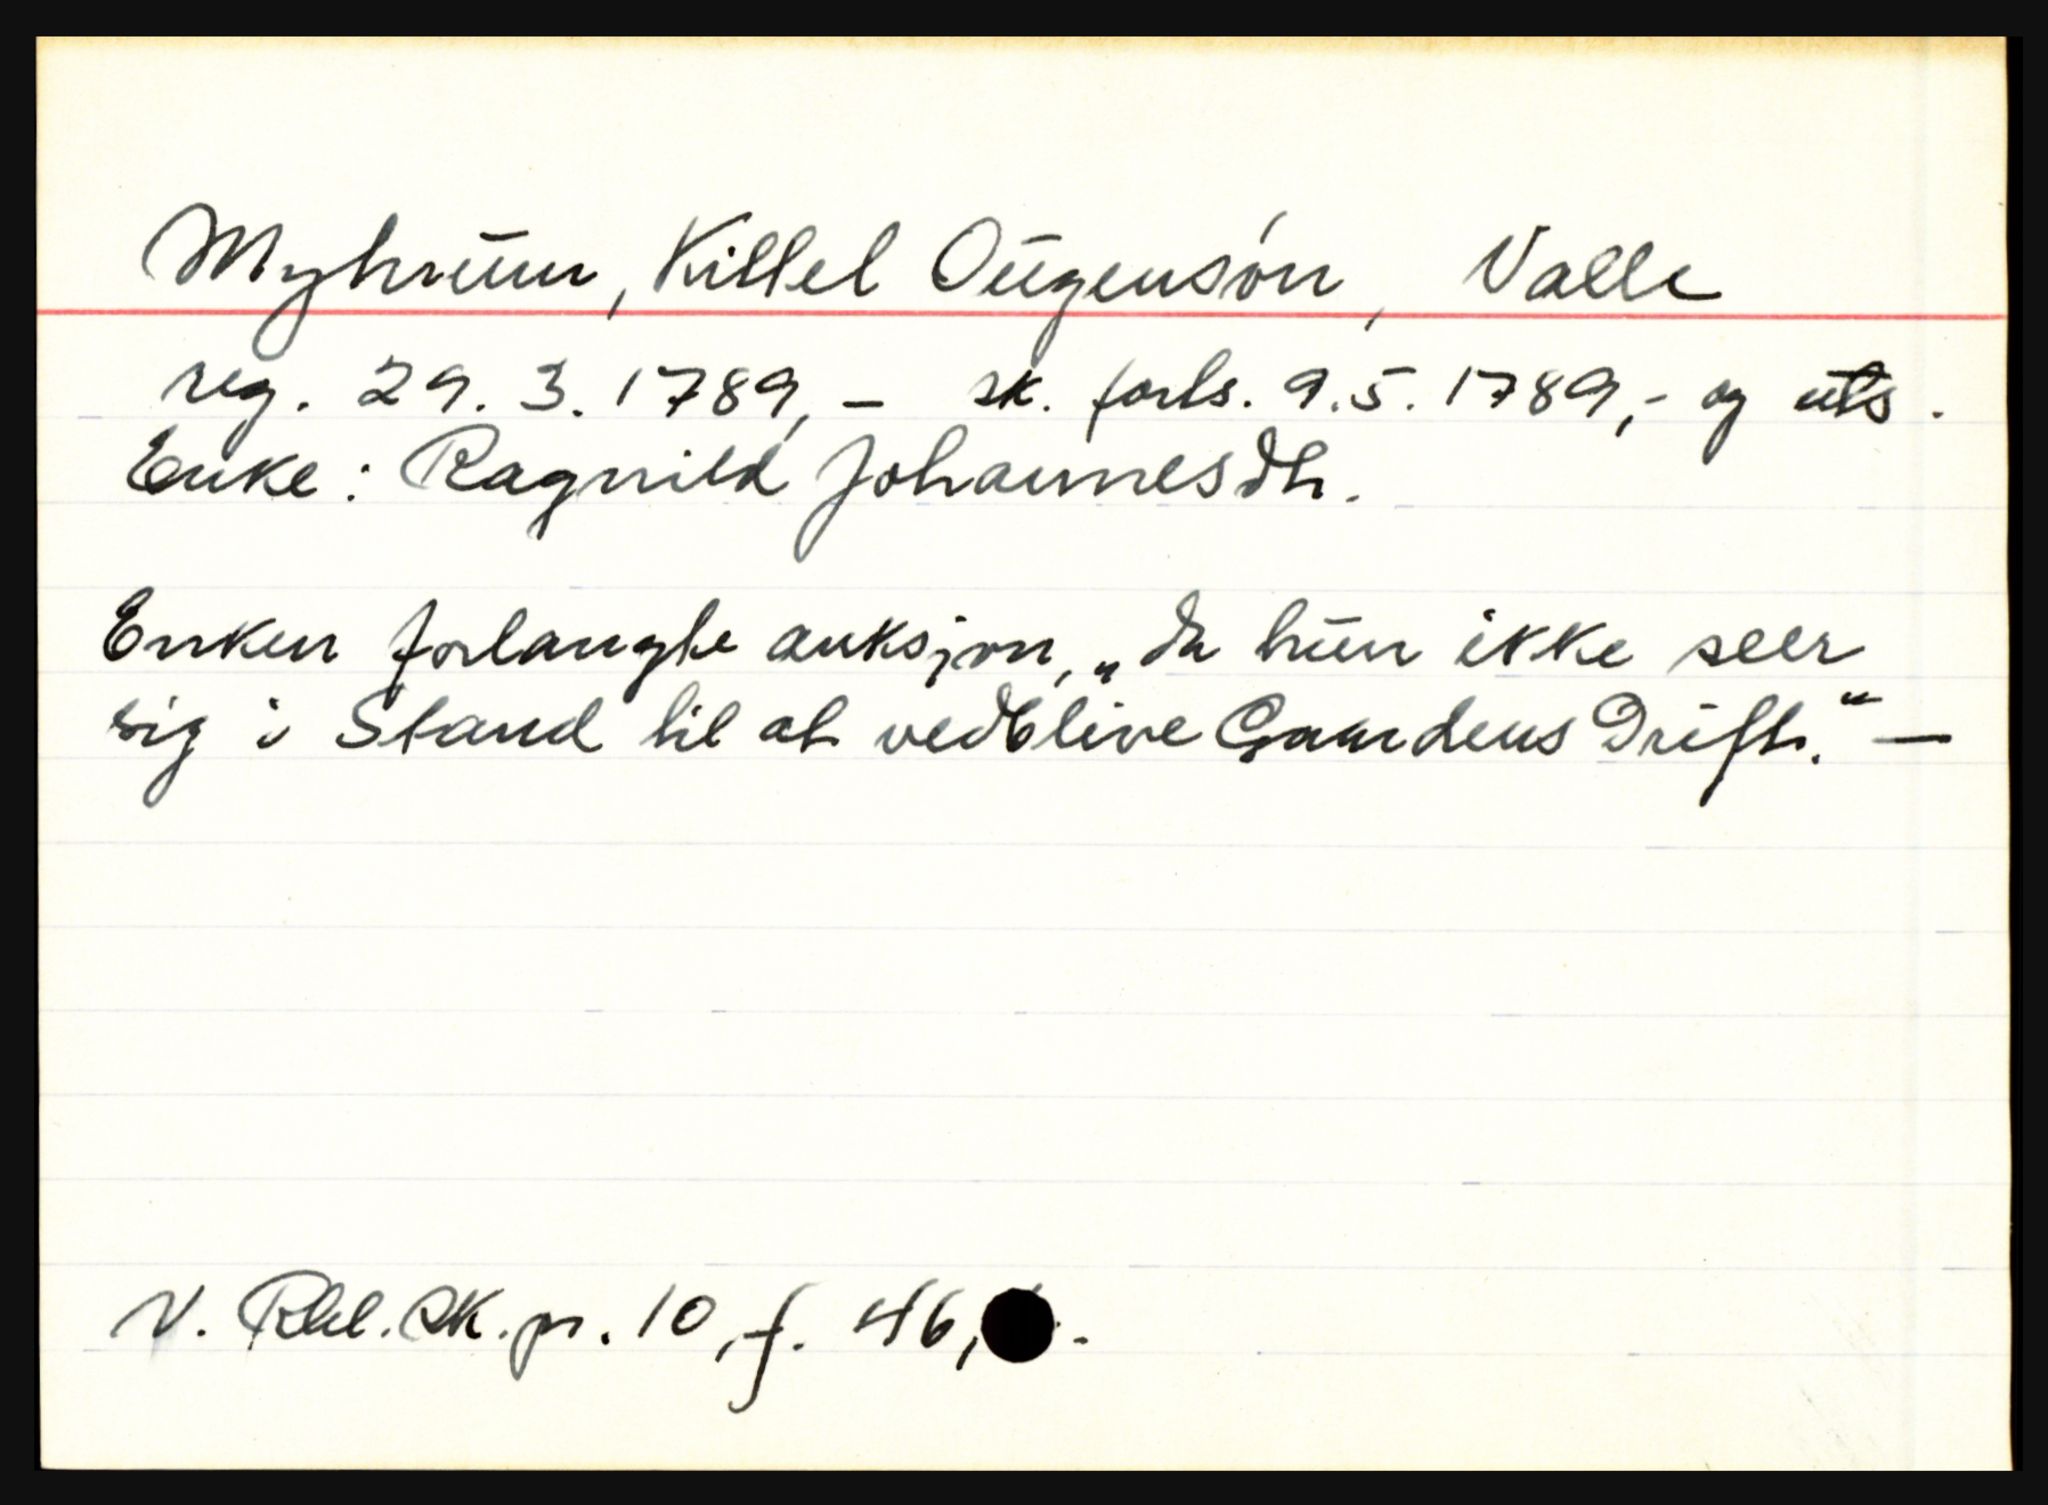 Myhrum, Kittel Ougensón, Valle
reg. 29. 3. 1789, - sk. forts. 9.5. 1789,- og uts.
Enke: Ragnild Johannesdtr.
Enken forlangte auksjon, „da hun ikke seer
sig i Stand til at vedblive Gaardens Drift." —
V. Rbl. sk. pr. 10, f. 46,